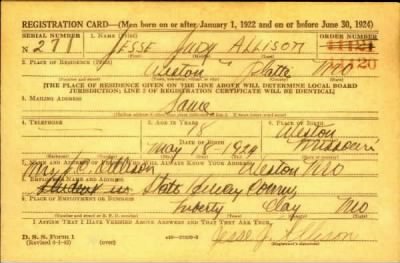 REGISTRATION CARD—(Men born on or after January 1, 1922 and on or before June 30, 1924)
SERIAL NUMBER 1. NAME (Print) ORDER NUMBER
N 271 JESSE JUDY ALLISON
(First) (Middle) (Last)
2. PLACE OF RESIDENCE (Print)
Weston Platte Mo
[THE PLACE OF RESIDENCE GIVEN ON THE LINE ABOVE WILL DETERMINE LOCAL BOARD
JURISDICTION; LINE 2 OF REGISTRATION CERTIFICATE WILL BE IDENTICAL]
3. MAILING ADDRESS
Same
4. TELEPHONE 5. AGE IN YEARS 6. PLACE OF BIRTH
18 Weston
DATE OF BIRTH
May 18-1924 Missouri
7. NAME AND ADDRESS OF PERSON WHO WILL ALWAYS KNOW YOUR ADDRESS
Allison Weston Mo
8. EMPLOYER'S NAME AND ADDRESS
State
9. PLACE OF EMPLOYMENT OR BUSINESS
Liberty Clay Mo
I AFFIRM THAT I HAVE VERIFIED ABOVE ANSWERS AND THAT THEY ARE TRUE.
D. S. S. Form 1
(Revised 6-1-42) (over)
Jesse J Allison
(Registrant's signature)